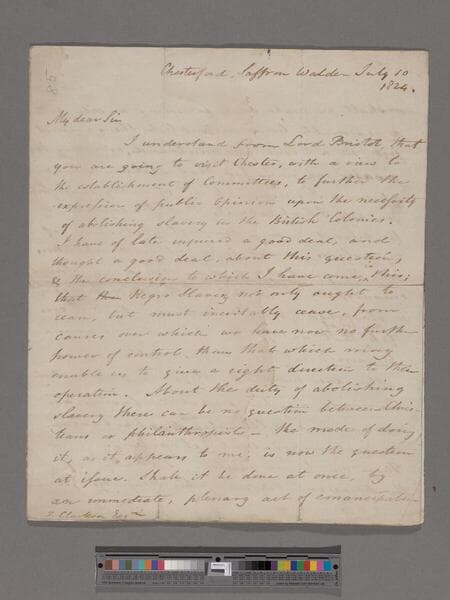 85
Chesterford, Saffron Walden July 10
1824.
My dear Sir
I understand from Lord Bristol that
you are going to visit Chester, with a view to
the establishment of Committees, to further the
expression of public Opinion upon the necessity
of abolishing slavery in the British Colonies.
I have of late inquired a good deal, and
thought a good deal, about this question,
& the conclusion to which I have come, is this;
that Negro Slavery not only ought to
cease, but must inevitably cease, from
causes over which we have now no further
power of control, than that which may
enable us to give a right direction to their
operation. About the duty of abolishing
slavery there can be no question between Chris-
tians or philanthropists – the mode of doing
it, as it appears to me, is now the question
at issue. Shall it be done at once, by
an immediate, plenary act of emancipation
T. Clarkson Esqre